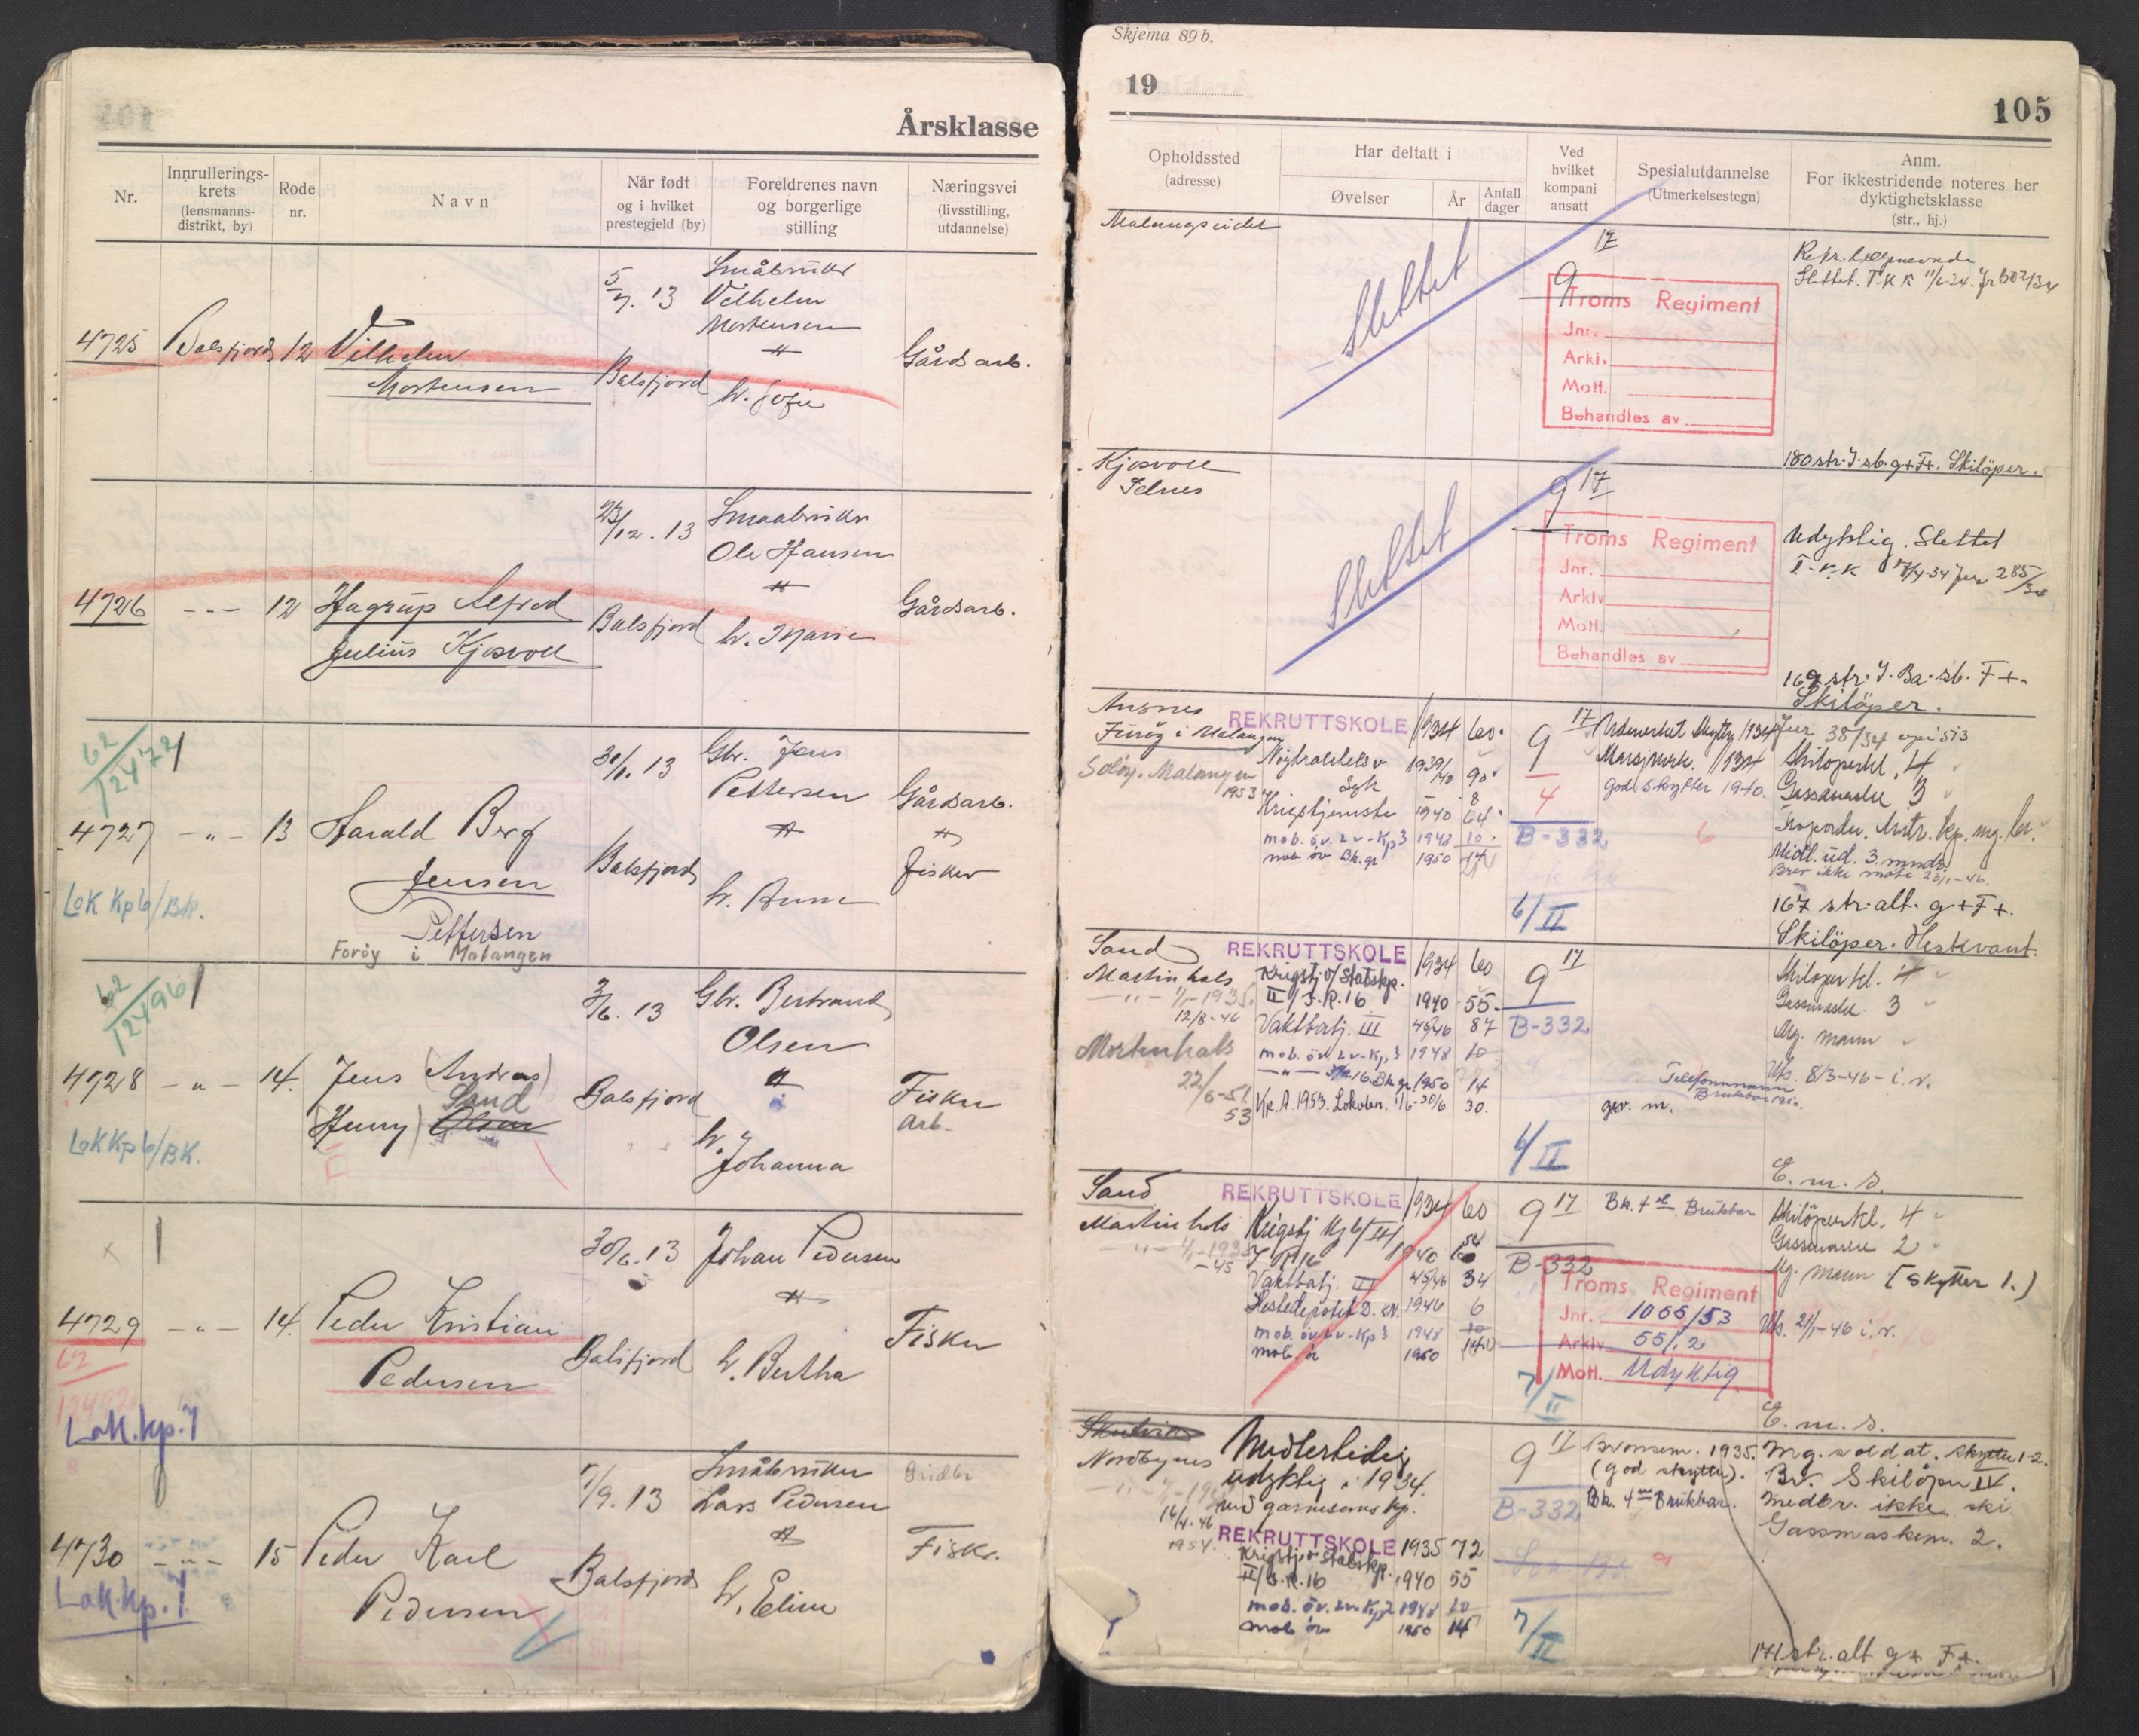 Årsklasse
Nr.
Innrullerings-
krets
(lensmanns-
distrikt, by)
Rode
nr.
Navn
Når født
og i hvilket
prestegjeld (by)
Foreldrenes navn
og borgerlige
stilling
Næringsvei
(livsstilling,
utdannelse)
4725 Balsfjord 12 Vilhelm
Mortensen
5/7. 13
Balsfjord
Småbruker
Vilhelm
Mortensen
h. Sofie
Gårdsarb.
4726 - - - 12 Hagrup Alfred
Julius Kjosvoll
23/12. 13
Balsfjord
Smaabruker
Ole Hansen
h. Marie
Gårdsarb.
62/12472
4727 - " - 13 Harald Berg
Jensen
Pettersen
Forøy i Malangen
LoK Kp 6/BK.
30/1. 13
Balsfjord
Gbr. Jens
Pettersen
h. Anna
Gårdsarb.
Fisker
62/12496
4728 - " - 14. Jens (Andreas)
Sand
(Henry) Olsen
LoK Kp 6/BK.
3/6. 13
Balsfjord
Gbr. Bertrand
Olsen
h. Johanna
Fisker
Arb.
4729 - " - 14. Peder Kristian
Pedersen
62
Lok.kp.7
30/6. 13
Balsfjord
Johan Pedersen
h. Bertha
Fisker
4730 - " - 15 Peder Karl
Pedersen
Lok.kp.7
7/9. 13
Balsfjord
Småbruker
Lars Pedersen
h. Eline
Fisker.
Skjema 89 b.
19
105
Opholdssted
(adresse)
Har deltatt i
Øvelser
År
Antall
dager
Ved
hvilket
kompani
ansatt
Spesialutdannelse
(Utmerkelsestegn)
Anm.
For ikkestridende noteres her
dyktighetsklasse
(str., hj.)
Malangseidet
Slettet
17
9
Troms Regiment
Jnr.
Arkiv.
Mott.
Behandles av
Slettet. T.K.K 11/6-34. Jr 602/34
180 str. J. sb. g+F+. Skiløper.
Kjosvoll
Slettet
9 17
Troms Regiment
Jnr.
Arkiv
Mott.
Behandles av
Udyktig. Slettet
285/34
169 str. J. Ba. sb. F+.
Skiløper.
Ansnes
Forøy i Malangen
1953
REKRUTTSKOLE 1934 60
Nøytralitetsv 1939/40 90
Syk 8
Krigstjeneste 1940 64
mob. øv. Lv-Kp 3 1948 10
mob øv Bk. gr 1950 14
9 17
4
B-332
6/II
Marsjmerk. 1934
god skytter 1940.
6
Jnr 38/34
Skiløperkl. 4
Gassmaske 3
Midl. ud. 3. mndr.
Brev ikke møte 23/1-46.
167 str. alt. g+F+.
Skiløper. Hestevant.
Sand
Martinhals
- " - 1/1-1935.
12/8-46
Mortenhals
22/6-51
53
REKRUTTSKOLE 1934 60
Krigstj v/ Stabskp.
II/I.R.16 1940 55
Vaktbatj. III 45/46 87
mob. øv. Lv-Kp. 3 1948 10
- " - I.R. 16 Bk gr. 1950 14
Kp. A. 1953. Lokalen. 1/6-30/6 30.
9 17
B-332
4/II
gev. m.
Telefonmann
Brukbar 1950.
Skiløperkl. 4
Gassmaske 3
Mg. mann
Uts. 8/3-46 - i. r.
E. m. s.
Sand
Martinhals
- " - 1/1-1935
-45
REKRUTTSKOLE 1934 60
Krigstj Kp 6/II
I.R.16 1940
Vaktbatj. III 45/46 34
Hestedepotet D. 1946 6
mob. øv. Lv-Kp 3 1948 10
mob. øv 1950 14
9 17
B-332
7/II
Bk. 4 Brukbar
Troms Regiment
Jnr. 1055/53
Arkiv 55/.2
Mott. Udyktig
Skiløperkl. 4
Gassmaske 2
Mg. mann (Skytter 1.)
Uts. 2/1-46 i. r.
E. m. s.
Nordbynes
16/4-46
1954.
Midlertidig
udyktig i 1934.
ved garnisonskp.
REKRUTTSKOLE 1935 72
Krigstj v Stabskp.
II/I.R.16 1940 55
mob. øv. Lv. Kp 2 1948 10
mob øv 1950 14
9 17
B-332
7/II
Bronsem. 1935.
(god skytter).
Bk. 4 Brukbar.
Mg. soldat. Skytter 1-2.
Br. Skiløper IV.
Medbr. ikke ski
Gassmaskem. 2.
171 str. alt g+ F+.